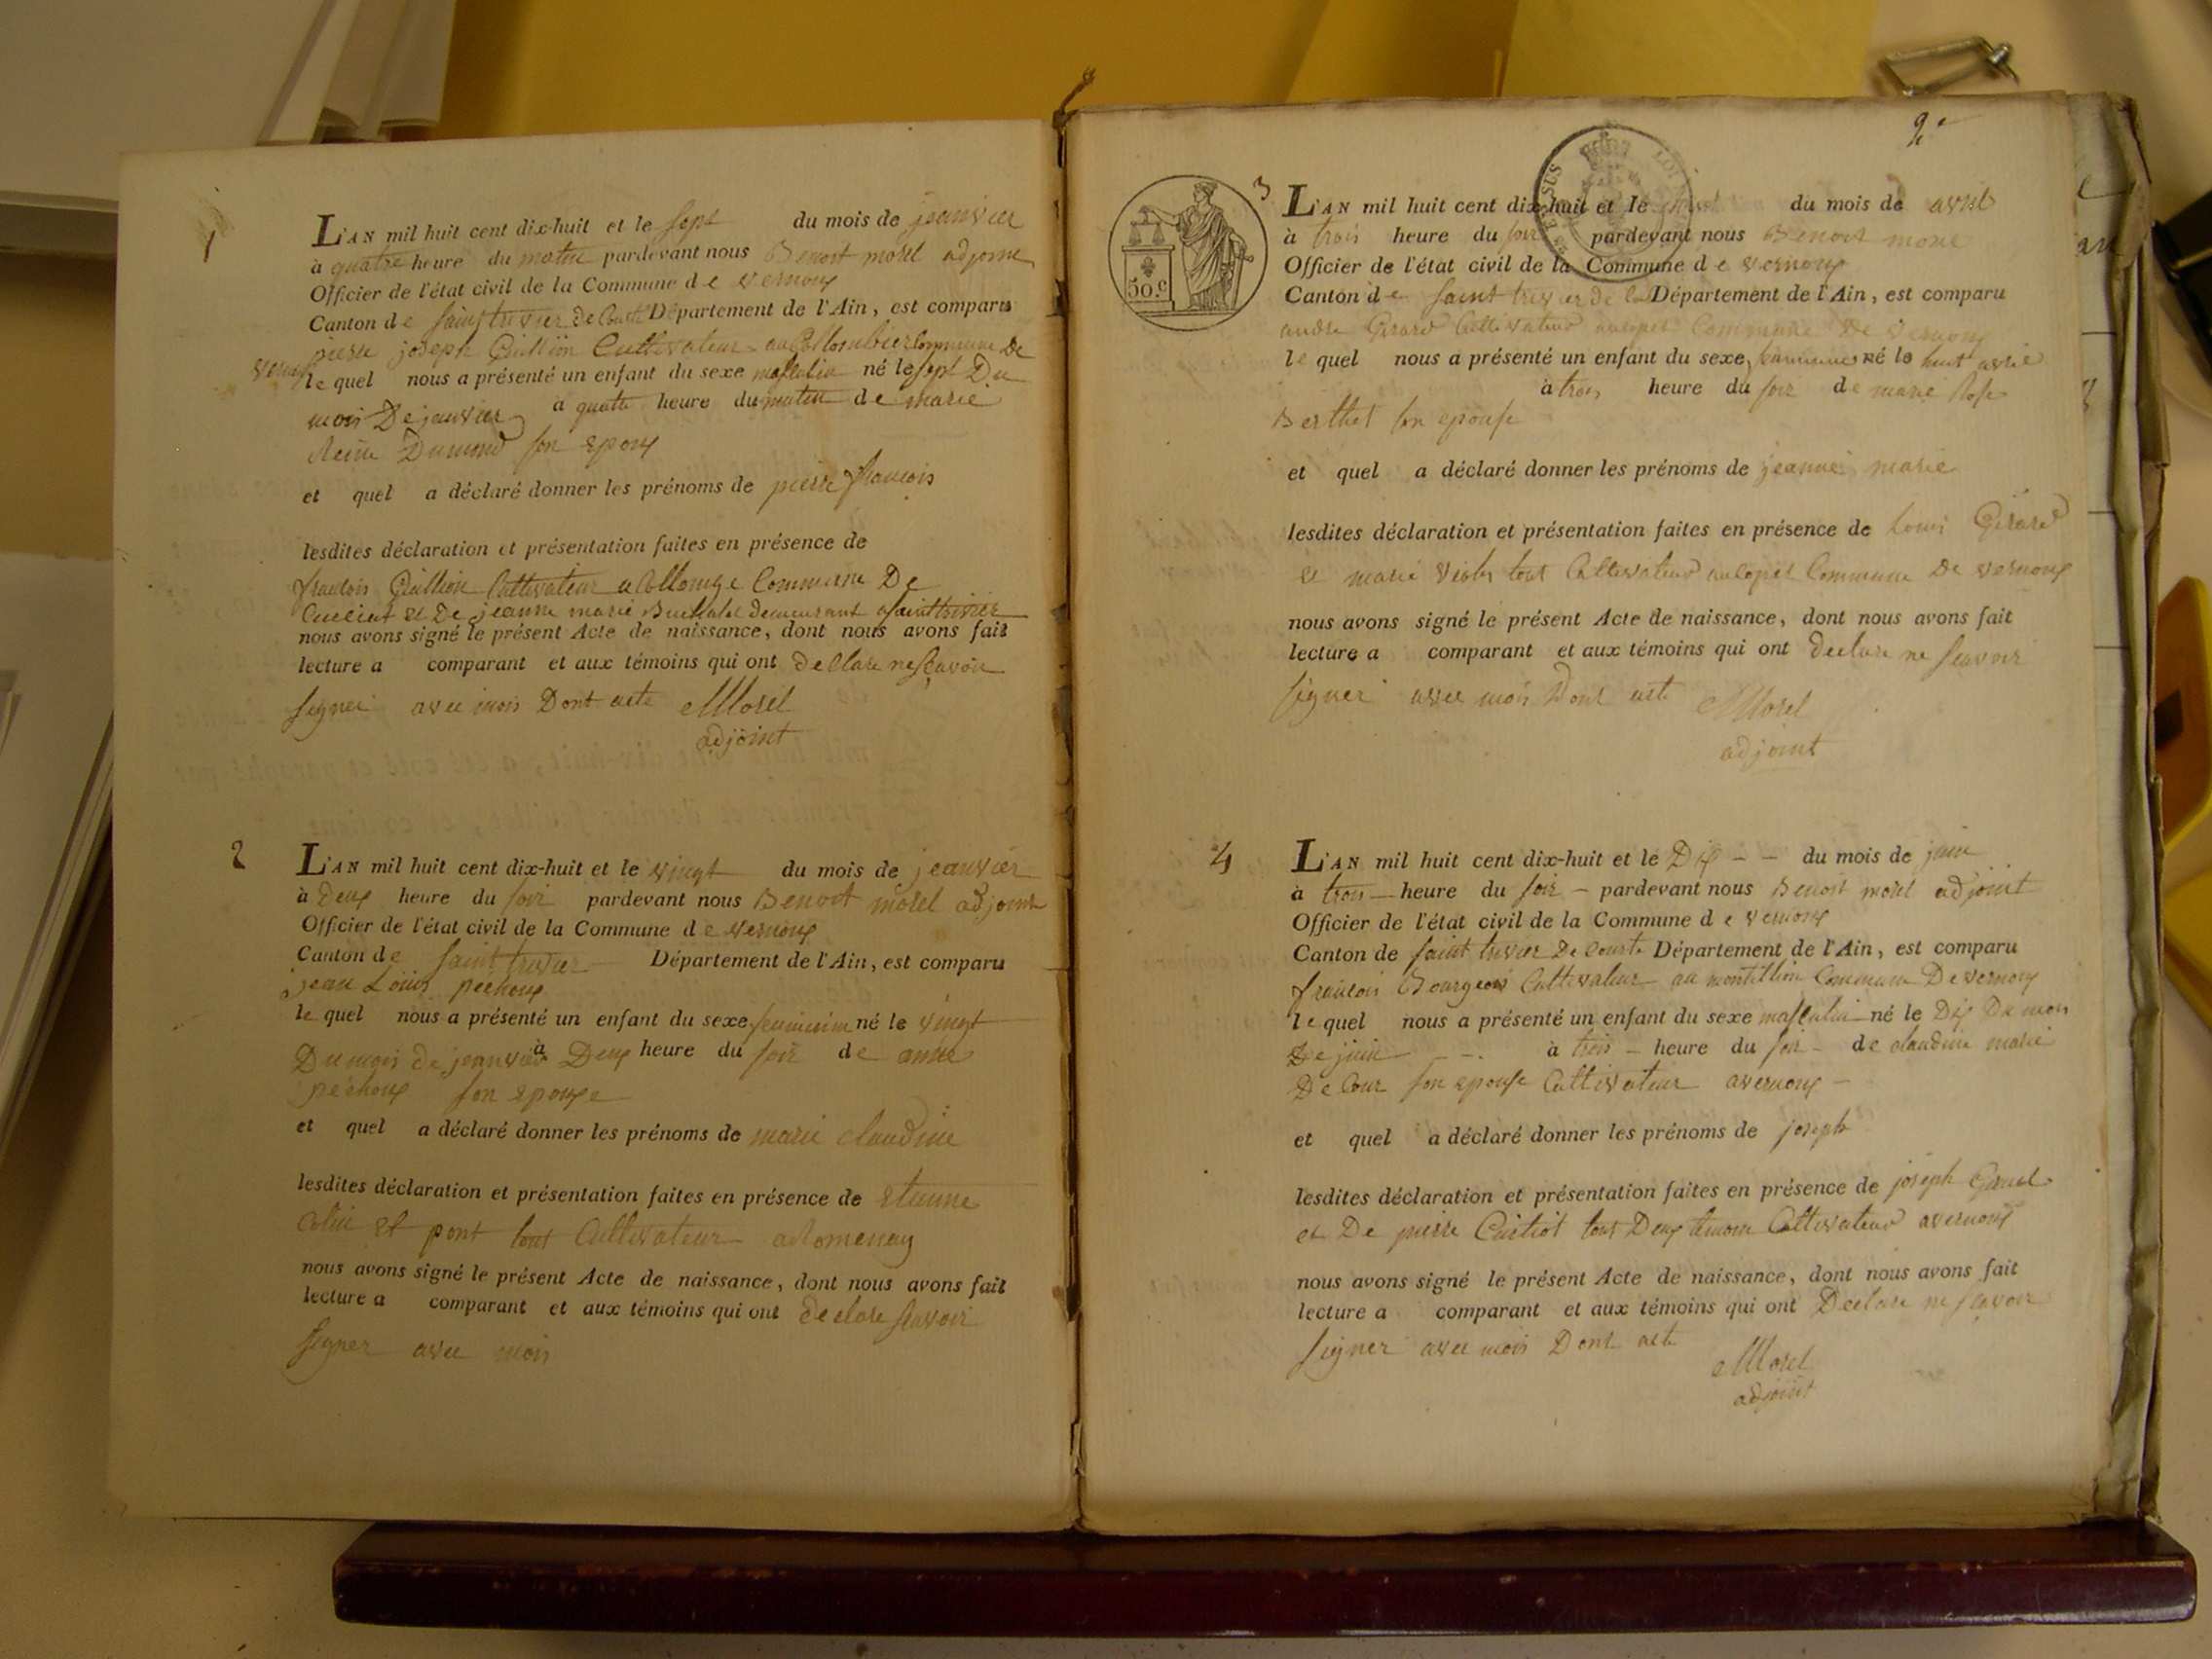 1
L'AN mil huit cent dix-huit et le sept du mois de jeanvier
à quatre heure du matin pardevant nous Benoit morel adjoint
Officier de l'état civil de la Commune de vernoux
Canton de saint trivier de Courte Département de l'Ain, est comparu
pierre joseph Guillion Cultivateur au Collombier Commune De
vernoux
le quel nous a présenté un enfant du sexe masculin né le sept Du
mois De janvier à quatre heure du matin de marie
Reine Dumond son epoux
et quel a déclaré donner les prénoms de pierre francois
lesdites déclaration et présentation faites en présence de
francois Guillion Cultivateur a Collonge Commune De
Curciat et De jeanne marie demeurant a saint trivier
nous avons signé le présent Acte de naissance, dont nous avons fait
lecture a comparant et aux témoins qui ont declare ne scavoir
signer avec mois Dont acte Morel
adjoint
2
L'AN mil huit cent dix-huit et le vingt du mois de jeanvier
à Deux heure du soir pardevant nous Benoit morel adjoint
Officier de l'état civil de la Commune de vernoux
Canton de saint trivier Département de l'Ain, est comparu
jean Louis pechoux
le quel nous a présenté un enfant du sexe feminim né le vingt
Du mois de jeanvier à Deux heure du soir de anne
pechoux son epouxe
et quel a déclaré donner les prénoms de marie claudine
lesdites déclaration et présentation faites en présence de Etienne
Colin et pont tout Cultivateur a Romenay
nous avons signé le présent Acte de naissance, dont nous avons fait
lecture a comparant et aux témoins qui ont declare scavoir
signer avec mois
2e
50.c
3
L'AN mil huit cent dix-huit et le du mois de avril
à trois heure du soir pardevant nous Benoit morel
Officier de l'état civil de la Commune de vernoux
Canton de saint trivier de Département de l'Ain, est comparu
andre Girard Cultivateur Commune De vernoux
le quel nous a présenté un enfant du sexe né le huit avril
à trois heure du soir de marie Rose
Berthet son epouse
et quel a déclaré donner les prénoms de jeanne marie
lesdites déclaration et présentation faites en présence de Louis Girard
et marie tout Cultivateur Commune De vernoux
nous avons signé le présent Acte de naissance, dont nous avons fait
lecture a comparant et aux témoins qui ont declare ne scavoir
signer avec mois Dont acte Morel
adjoint
4
L'AN mil huit cent dix-huit et le Dix du mois de juin
à trois heure du soir pardevant nous Benoit morel adjoint
Officier de l'état civil de la Commune de vernoux
Canton de saint trivier De Courte Département de l'Ain, est comparu
francois Bourgeois Cultivateur au Commune De vernoux
le quel nous a présenté un enfant du sexe masculin né le Dix Du mois
De juin à trois heure du soir de claudine marie
De Cour son epouse Cultivateur a vernoux
et quel a déclaré donner les prénoms de joseph
lesdites déclaration et présentation faites en présence de joseph
et De pierre tout Deux temoin Cultivateur a vernoux
nous avons signé le présent Acte de naissance, dont nous avons fait
lecture a comparant et aux témoins qui ont Declare ne scavoir
signer avec mois Dont acte
Morel
adjoint